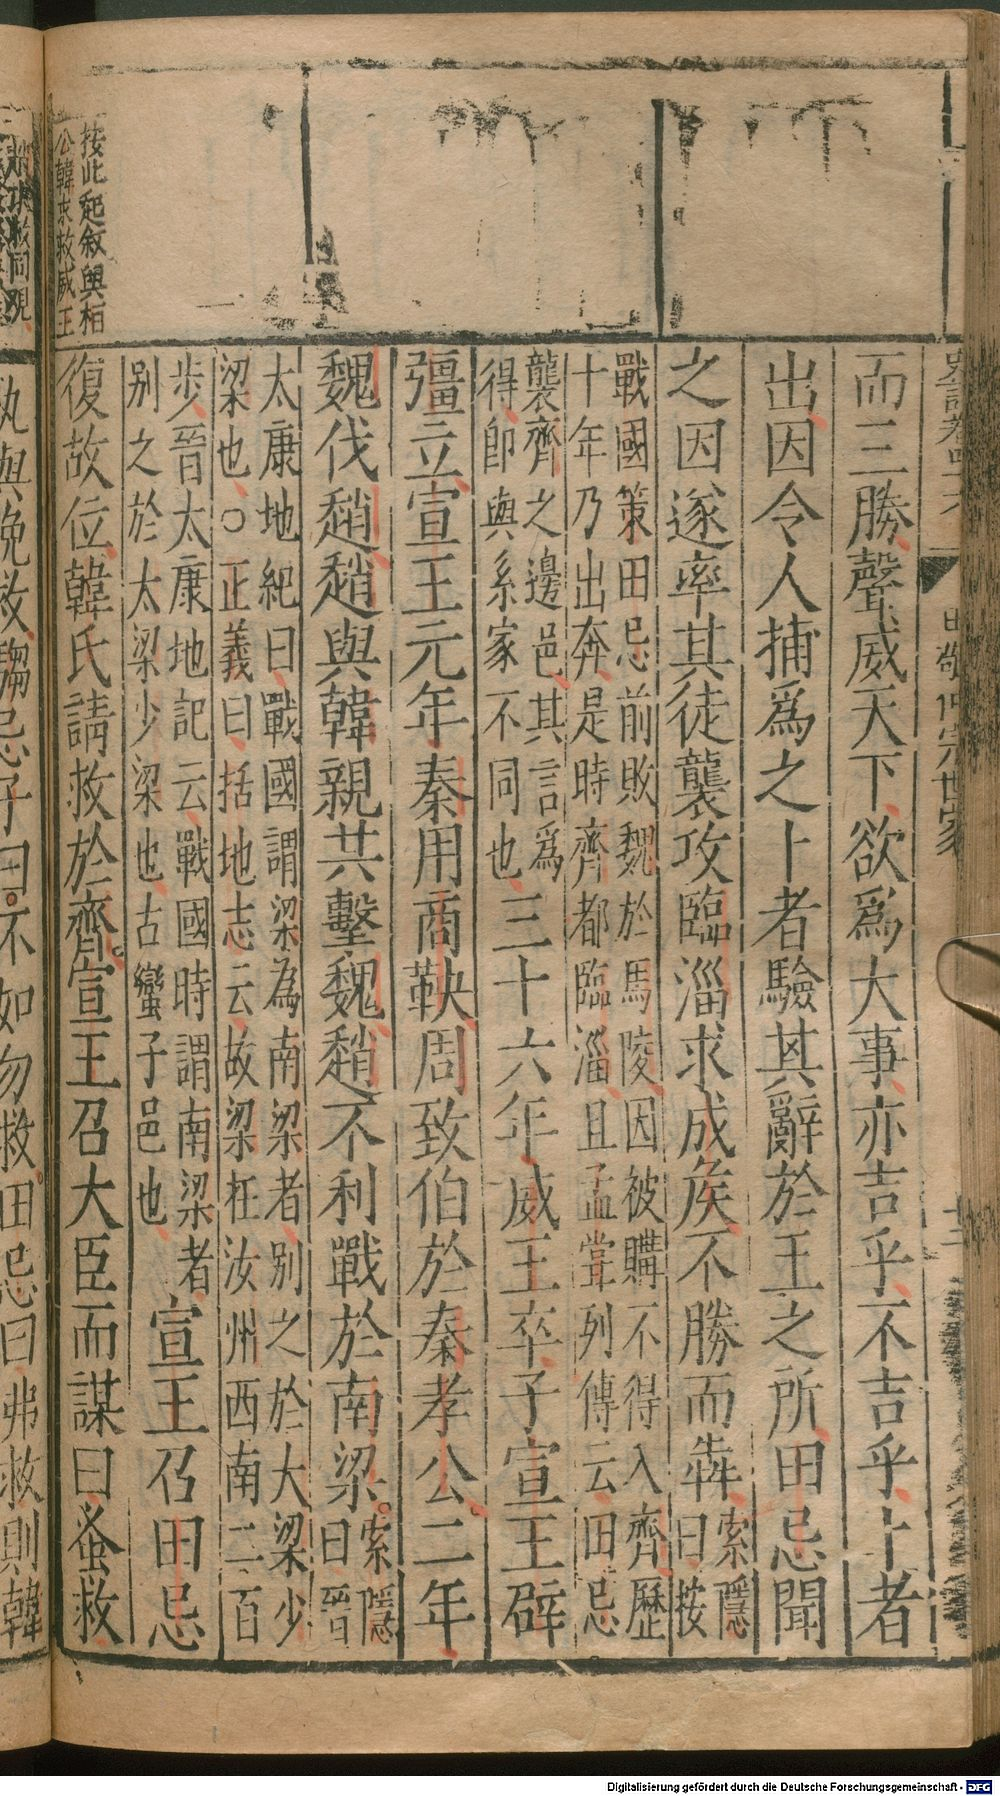 史記卷四十六 田敬仲完世家 十二
而三勝聲威天下欲爲大事亦吉乎不吉乎卜者
出因令人捕爲之卜者驗其辭於王之所田忌聞
之因遂率其徒襲攻臨淄求成侯不勝而犇索隱曰按
戰國策田忌前敗魏於馬陵因被購不得入齊歷
十年乃出奔是時齊都臨淄且孟嘗列傳云田忌
襲齊之邊邑其言爲
得卽與系家不同也三十六年威王卒子宣王辟
彊立宣王元年秦用商鞅周致伯於秦孝公二年
魏伐趙趙與韓親共擊魏趙不利戰於南梁索隱曰晉
太康地紀曰戰國謂梁為南梁者別之於大梁少
梁也○正義曰括地志云故梁在汝州西南二百
步晉太康地記云戰國時謂南梁者
別之於大梁少梁也古蠻子邑也宣王召田忌
復故位韓氏請救於齊宣王召大臣而謀曰蚤救
按此起敘與相
公韓求救威王
孰與晚救騶忌子曰不如勿救田忌曰弗救則韓
Digitalisierung gefördert durch die Deutsche Forschungsgemeinschaft - DFG